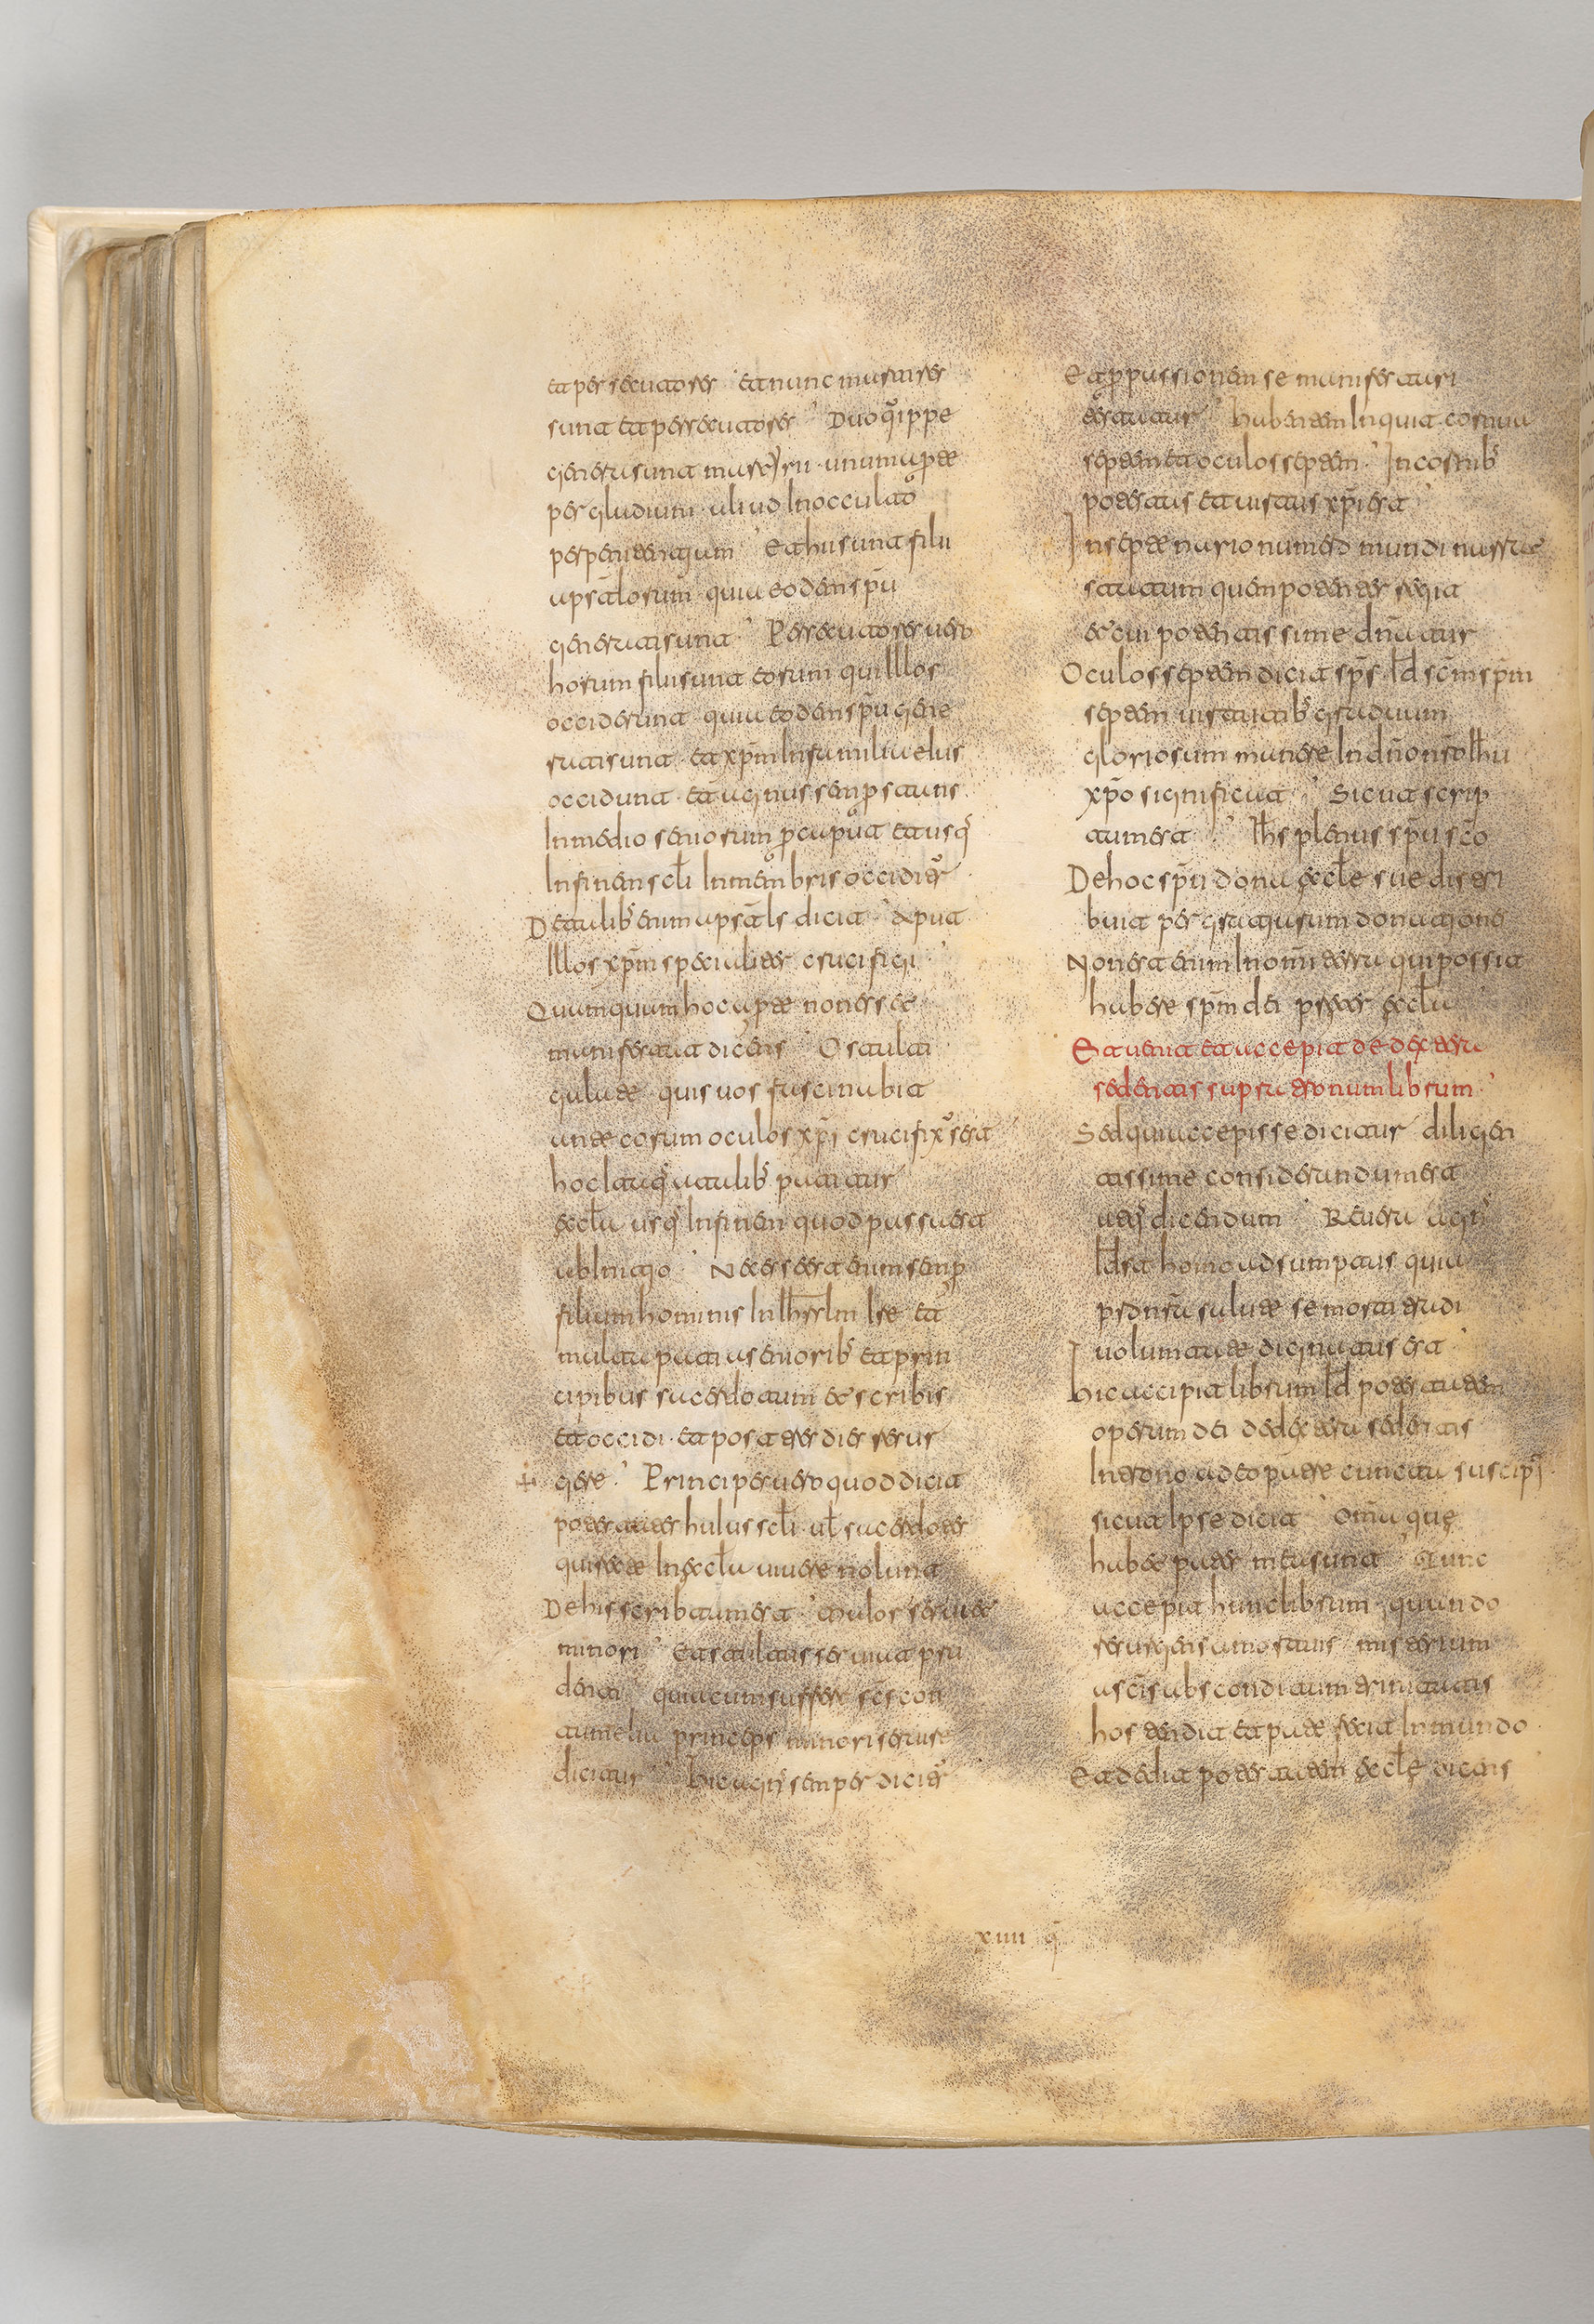 et persecutores · et nunc martires
sunt et persecutores · Duo quippe
genera sunt martirii · unum aparte
per gladium · aliud In occulto
per penitentiam · Et hii sunt filii
apstlorum · quia eodem spu
generati sunt · Persecutores uero
horum filii sunt eorum qui Illos
occiderunt · quia eodem spu gene
rati sunt · et xpm In familia eius
occidunt · et agnus semp stans
In medio seniorum et usq
In finem scli In membris occiditur
De talib enim apstls dicit · aput
Illos xpm specialiter crucifigi ·
Quamquam hoc aperte non esset
manifestat dicens · O stulti
galate · quis uos fascinabit
ante eorum oculos xpi crucifixus est
hoc Itaq a talib patitur
eccla usq In finem quod passa est
ab Initio · Necesse est enim semp
filium hominis In Ihrslm Ire et
multa pati a seniorib et prin
cipibus sacerdotum et scribis
et occidi · et post tres dies resur
gere · Principes uero quod dicit
potestates huius scli · ul sacerdotes
qui recte In eccla uiuere nolunt
De his scribtum est · Maior seruiet
minori · Et stultus seruiat pru
denti · quia cum suffert scs con
tumelia princeps minori seruire
dicitur · Hic agns semper dicitur
Et p passionem se manifestari
Habentem Inquit cornua
septem et oculos septem · In cornib
potestatis et uirtutis xpi est
In septenario numero mundi
statum quem potenter regit
et cui potentissime dnatur
Oculos septem dicit sps · Id scm spm
septem uirtutib gradium
gloriosum manere In dno nsro Ihu
xpo significat · Sicut scrip
tum est · Ihs plenus spu sco
De hoc spu dona eccle sue distri
buit per gratiarum donatione
Non est enim In omni terra qui possit
habere spm dei preter eccla
Et uenit et accepit de dextera
sedentis supra tronum librum ·
Sed qui accepisse dicitur diligen
tissime considerandum est
dicendum · Reuera agns
Idst homo adsumptus quia
salute se morti tradi
uoluntate dignatus est
Hic accipit librum Id potestatem
operum dei de dextera sedentis
In trono ad eo patre cuncta suscipi
sicut Ipse dicit · Omia que
habet pater mea sunt · Tunc
accepit hunc librum · quando
resurgens a mortuis misterium
a scis absconditum trinitatis
hostendit et patere fecit In mundo
Et dedit potestatem eccle dicens
xiiii q